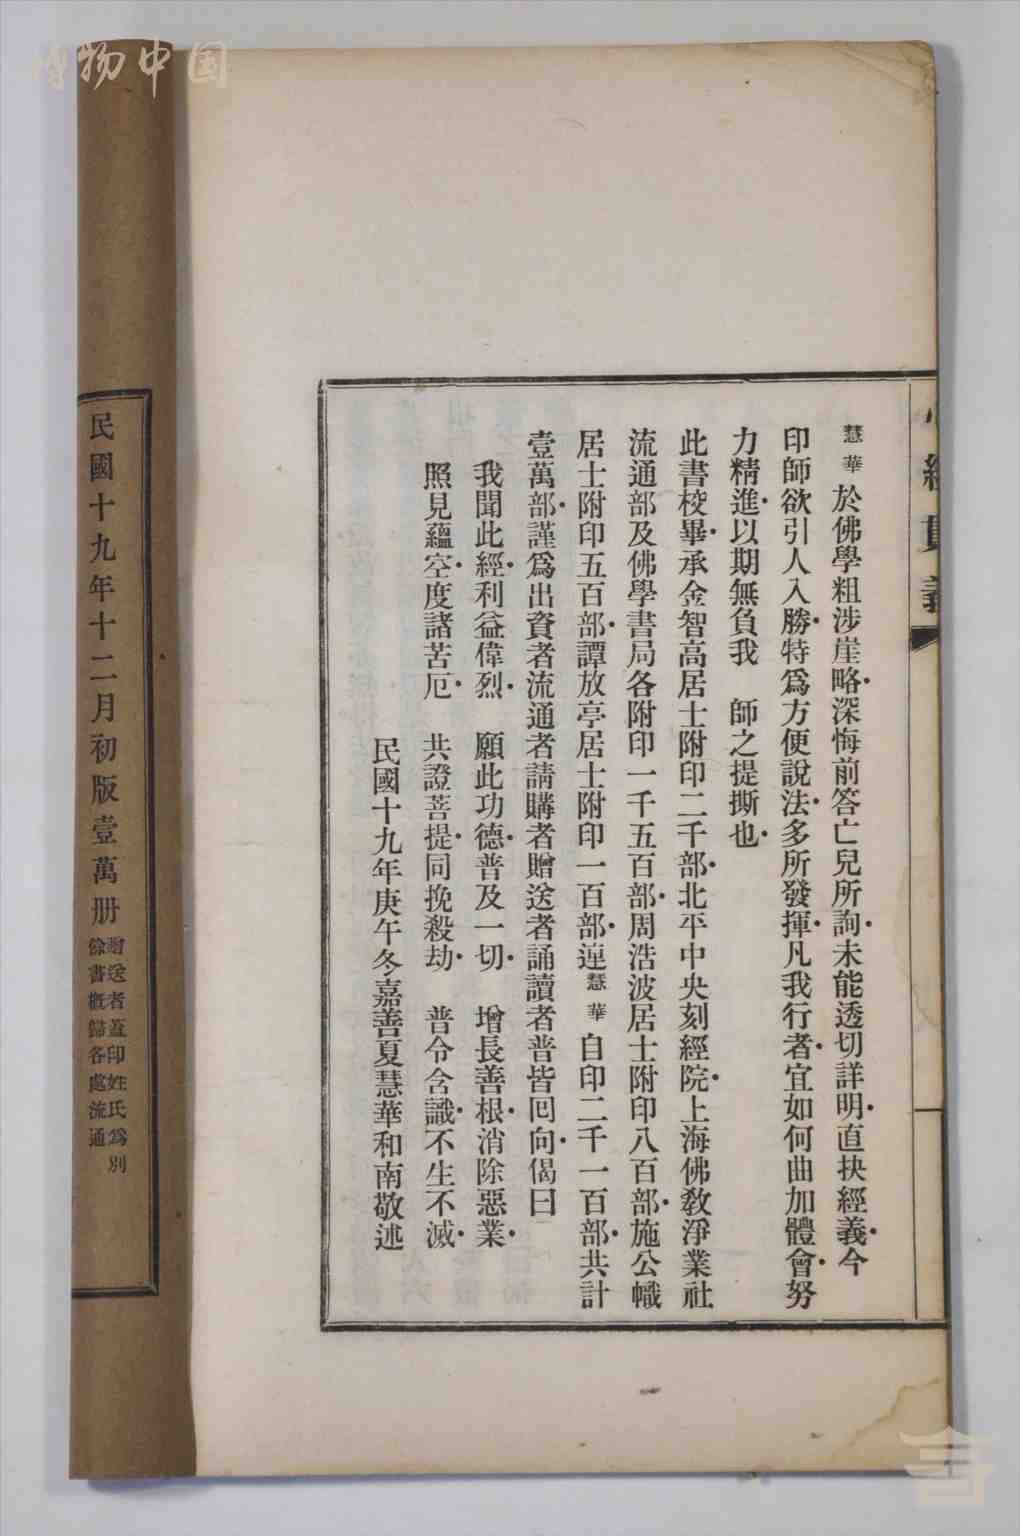 心經貫義
慧華於佛學粗涉崖略．深悔前答亡兒所詢．未能透切詳明．直抉經義．今
印師欲引人入勝．特爲方便說法．多所發揮．凡我行者．宜如何曲加體會．努
力精進．以期無負我　師之提撕也．
此書校畢．承金智高居士附印二千部．北平中央刻經院．上海佛敎淨業社
流通部及佛學書局各附印一千五百部．周浩波居士附印八百部．施公幟
居士附印五百部．譚放亭居士附印一百部．連慧華自印二千一百部．共計
壹萬部．謹爲出資者流通者請購者贈送者誦讀者普皆回向．偈曰
我聞此經．利益偉烈．　願此功德．普及一切．　增長善根．消除惡業．
照見蘊空．度諸苦厄．　共證菩提．同挽殺劫．　普令含識．不生不滅．
民國十九年庚午冬嘉善夏慧華和南敬述
民國十九年十二月初版壹萬册
附送者蓋印姓氏爲別
餘書概歸各處流通
博物中国